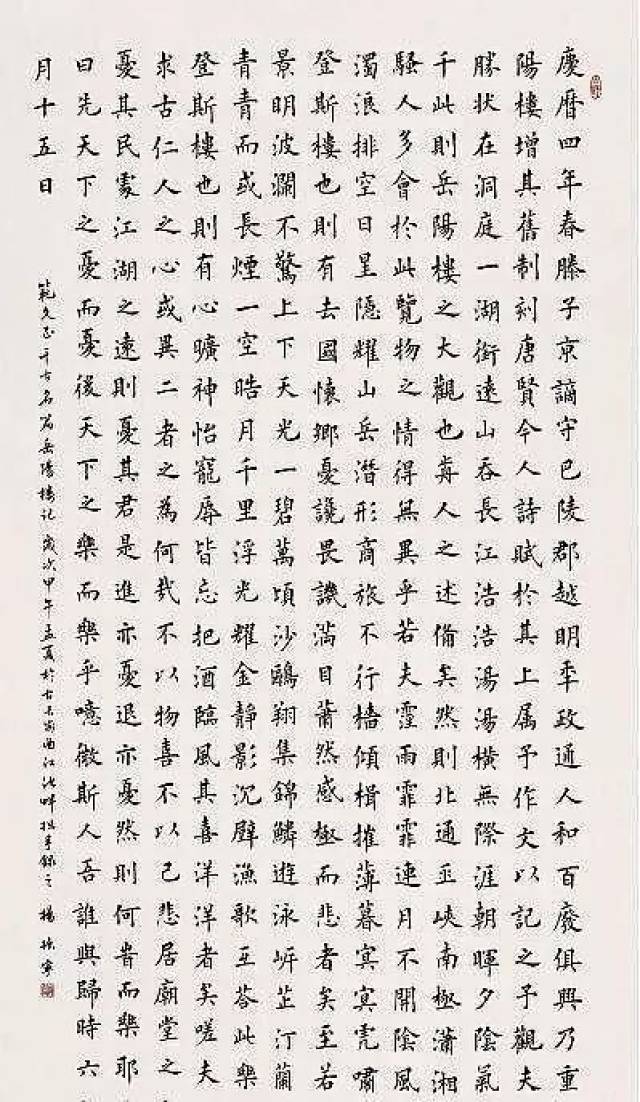 慶曆四年春滕子京謫守巴陵郡越明秊政通人和百廢俱興乃重
陽樓增其舊制刻唐賢今人詩賦於其上属予作文以記之予觀夫
勝狀在洞庭一湖銜遠山吞長江浩浩湯湯橫無際涯朝暉夕陰氣
千此則岳陽樓之大觀也歬人之述備矣然則北通巫峽南極瀟湘
騷人多會於此覽物之情得無異乎若夫霪雨霏霏連月不開陰風
濁浪排空日星隱耀山岳潛形商旅不行檣傾楫摧薄暮冥冥虎嘯
登斯樓也則有去國懷鄉憂讒畏譏滿目蕭然感極而悲者矣至若
景明波瀾不驚上下天光一碧萬頃沙鷗翔集錦鱗遊泳岍芷汀蘭
青青而或長煙一空皓月千里浮光耀金靜影沉璧漁歌互荅此樂
登斯樓也則有心曠神怡寵辱皆忘把酒臨風其喜洋洋者矣嗟夫
求古仁人之心或異二者之為何哉不以物喜不以己悲居廟堂之
憂其民處江湖之遠則憂其君是進亦憂退亦憂然則何旹而樂耶
曰先天下之憂而憂後天下之樂而樂乎噫微斯人吾誰與歸時六
月十五日
範文正千古名篇岳陽樓記歲次甲午孟夏於古長安曲江池畔拙手錄之楊